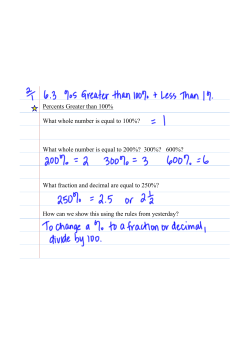 2/1 6.3 %s Greater than 100% + Less Than 1%.
Percents Greater than 100%
What whole number is equal to 100%? = 1
What whole number is equal to 200%? 300%? 600%?
200% = 2 300% = 3 600% = 6
What fraction and decimal are equal to 250%?
250% = 2.5 or 2 1/2
How can we show this using the rules from yesterday?
To change a % to a fraction or decimal,
divide by 100.